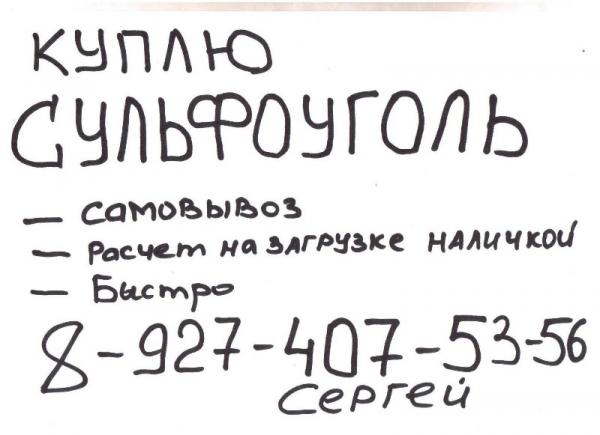 КУПЛЮ
СУЛЬФОУГОЛЬ
— САМОВЫВОЗ
— Расчет на загрузке наличкой
— Быстро
8-927-407-53-56
Сергей